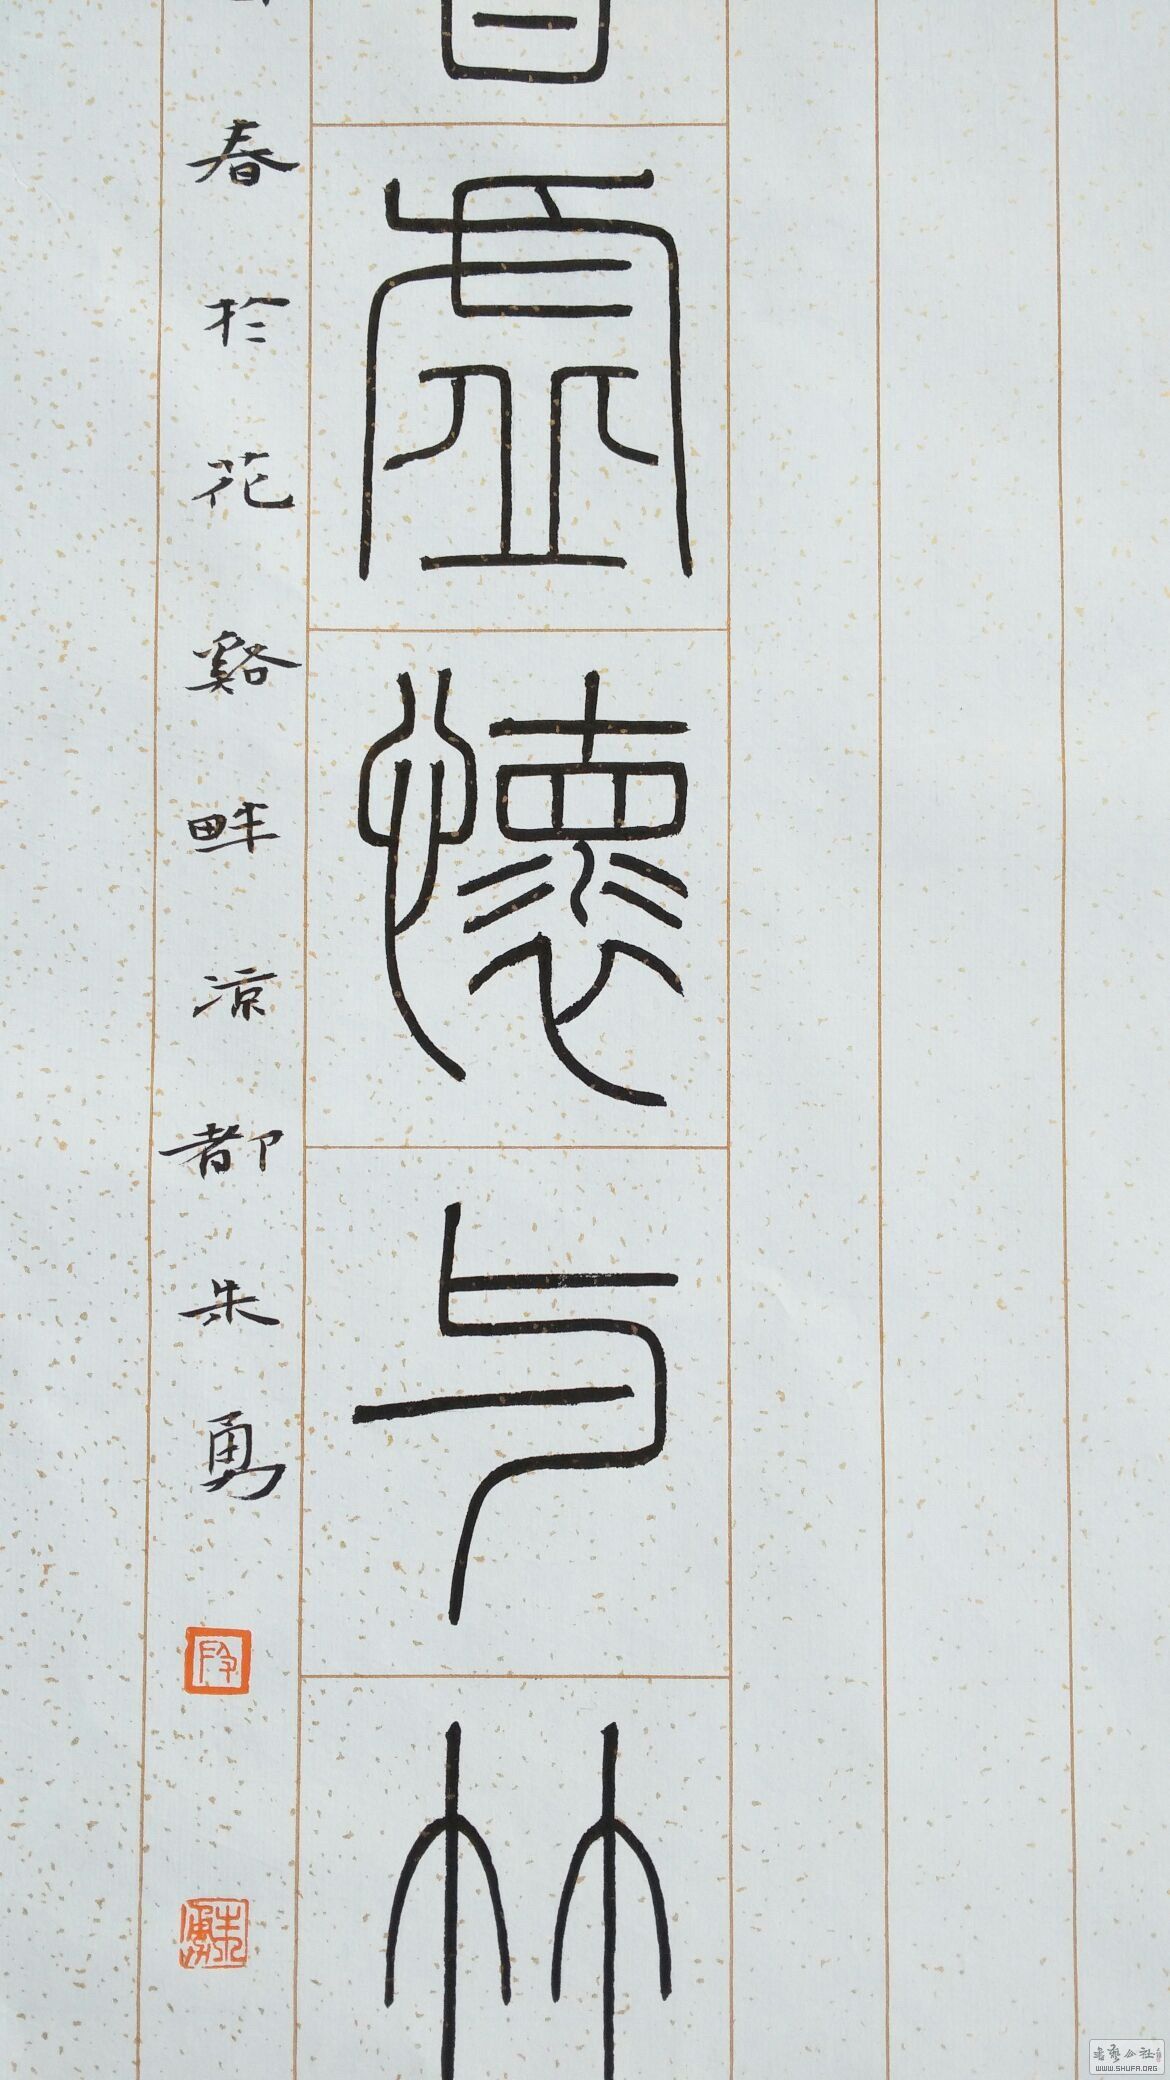 虛懷与竹
春於花谿畔凉都朱勇
朱勇
書藝公社
WWW.SHUFA.ORG